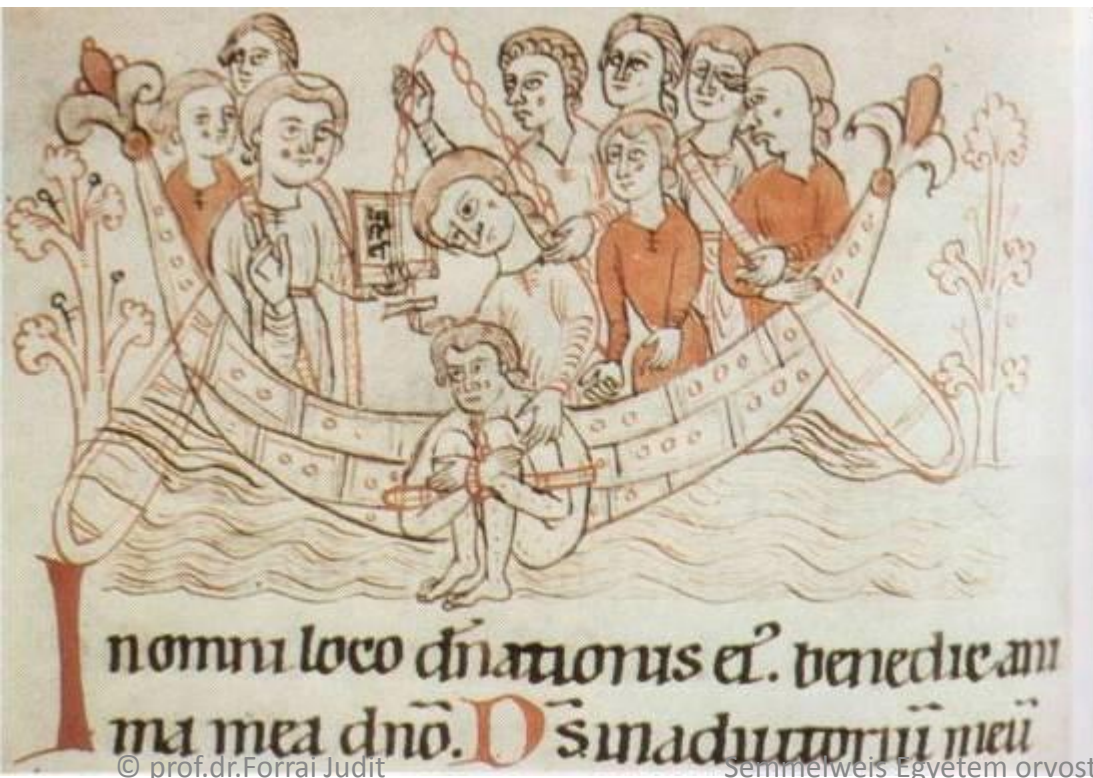 In omni loco dn̄ationis ei᾽. benedic ani
ma mea dn̄o. Ds̄ in adiutoriū meū
© prof.dr.Forrai Judit
Semmelweis Egyetem orvost